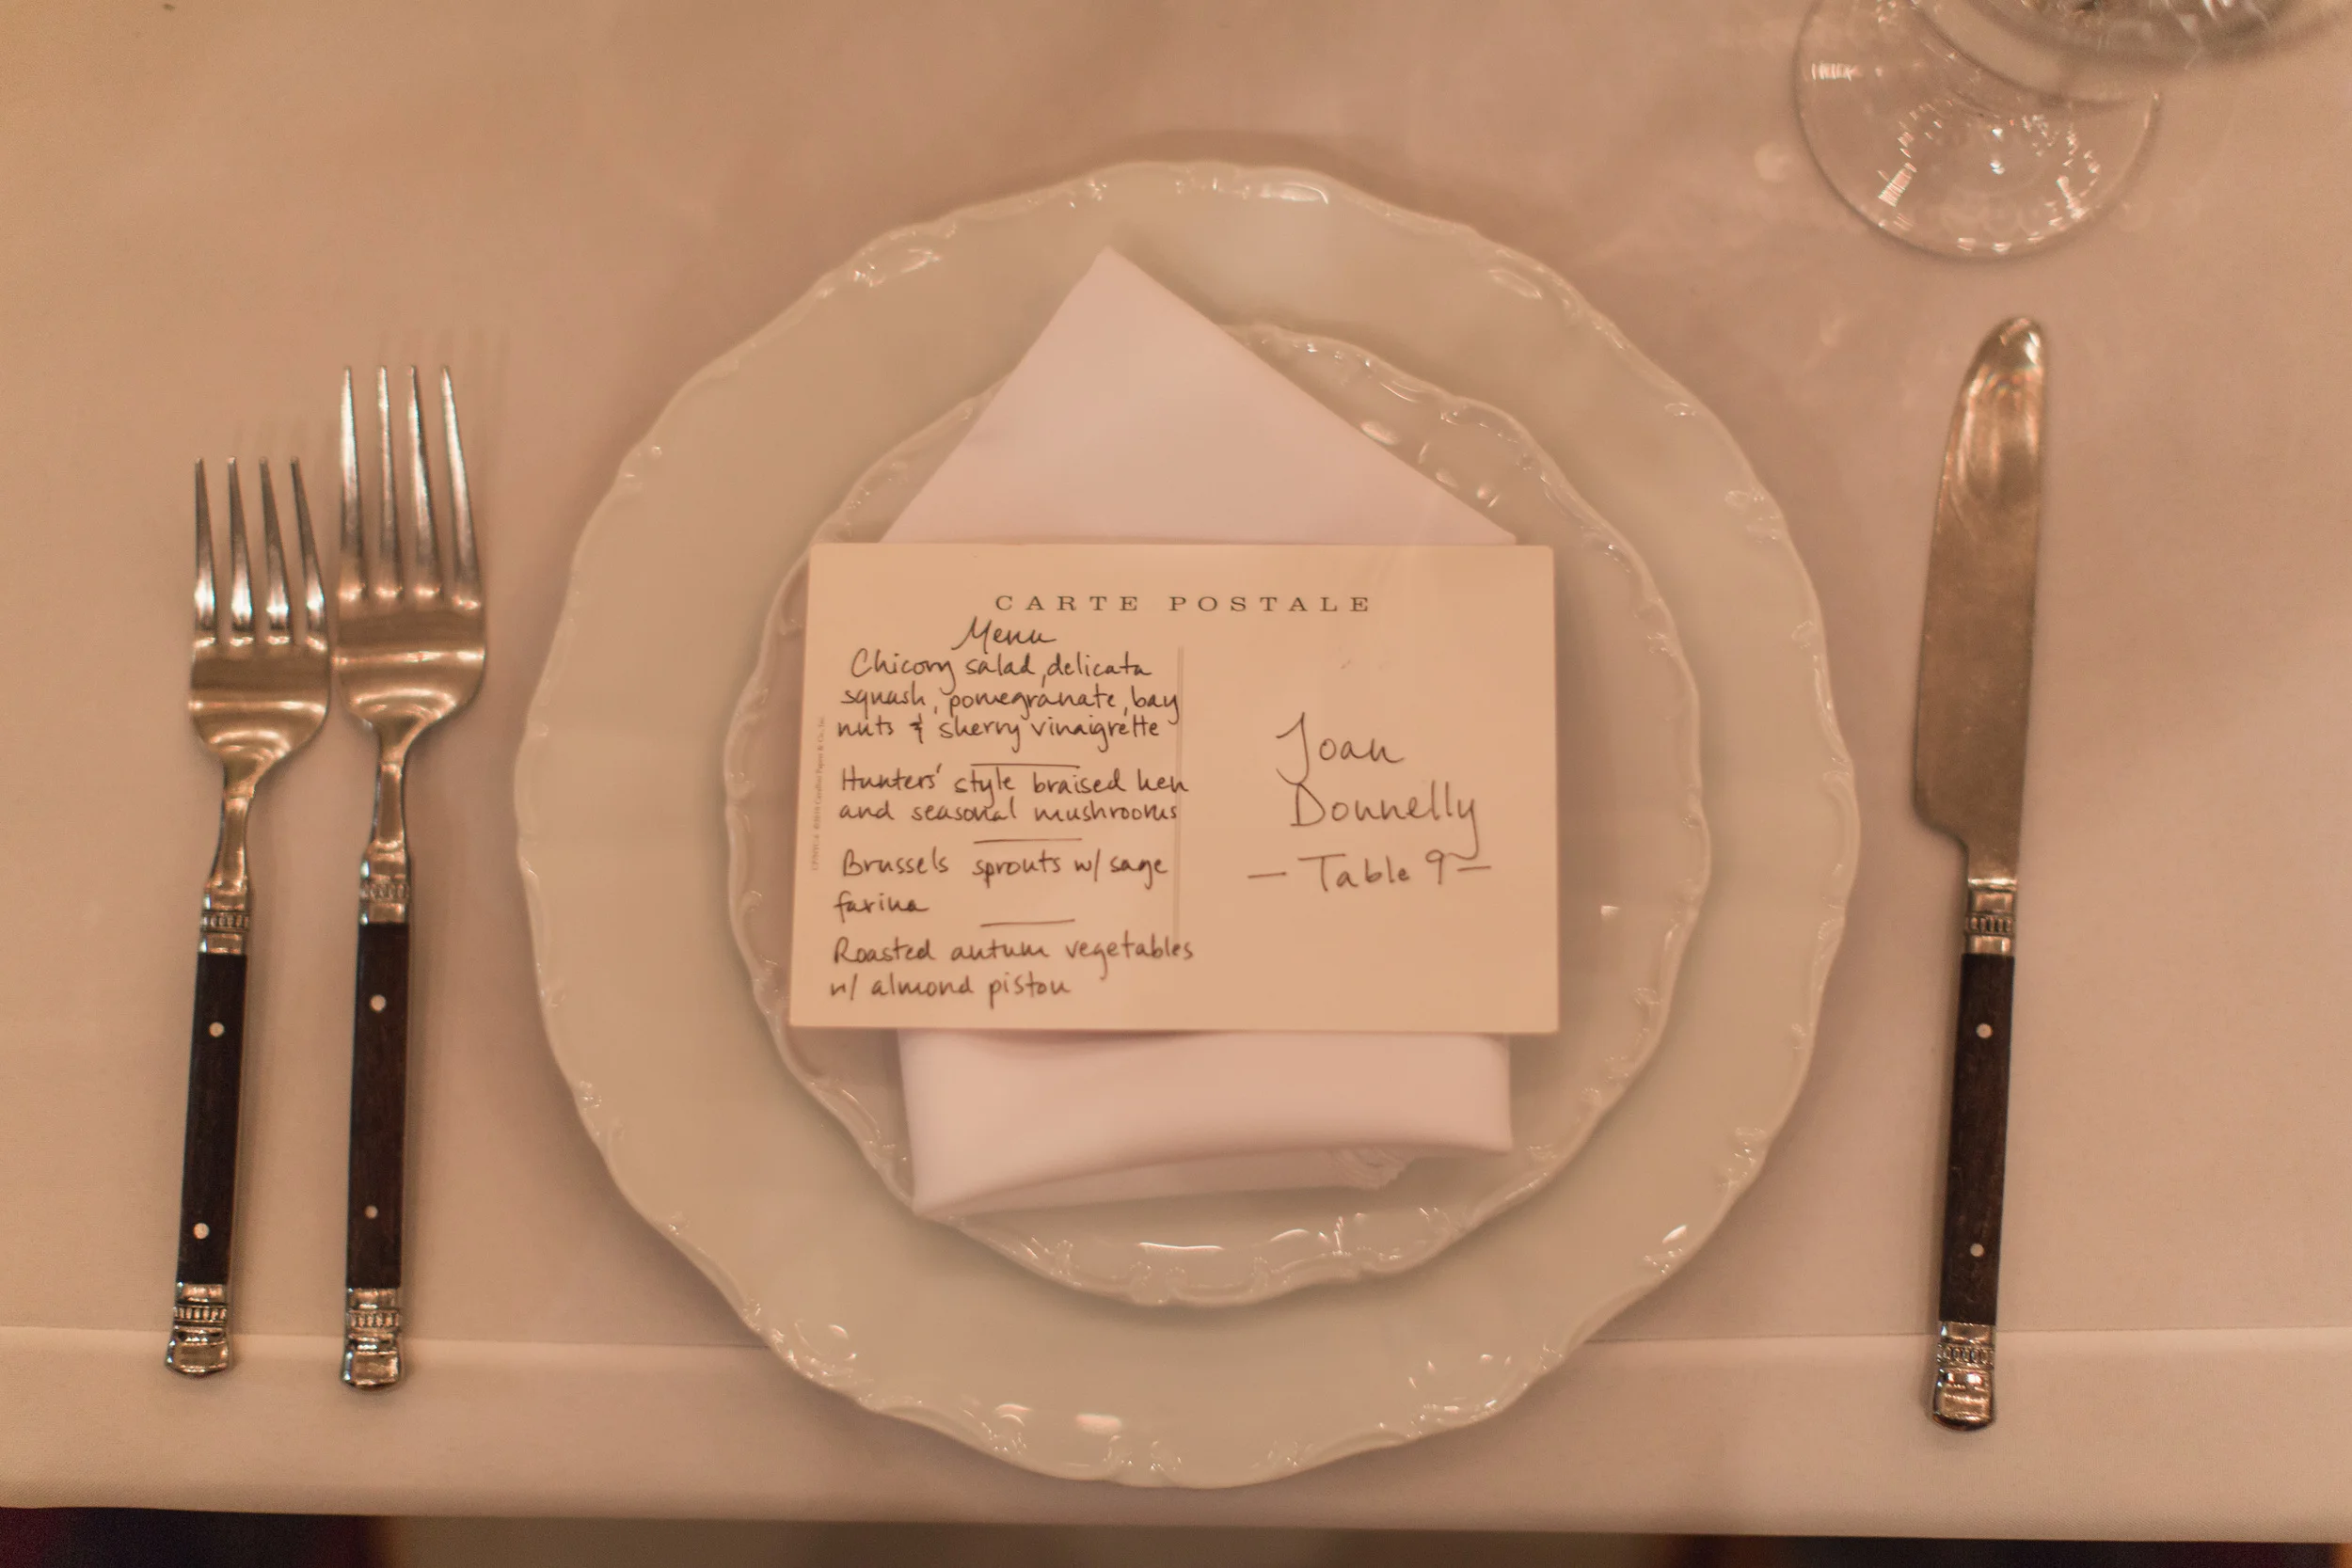 CARTE POSTALE
Menu
Chicory salad, delicata
squash, pomegranate, bay
nuts & sherry vinaigrette
Hunters' style braised hen
and seasonal mushrooms
Brussels sprouts w/ sage
farina
Roasted autum vegetables
w/ almond pistou
Joan
Donnelly
— Table 9 —